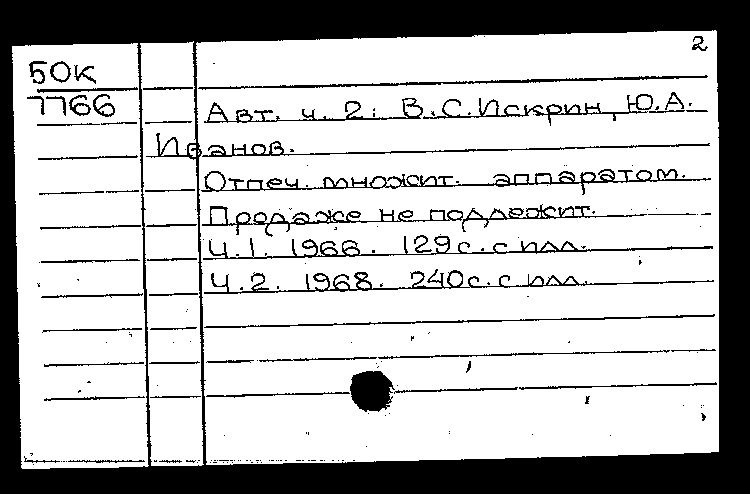 2
50К
7766
Авт. ч. 2: В.С.Искрин, Ю.А.
Иванов.
Отпеч. множит. аппаратом.
Продаже не подлежит.
Ч.1. 1966. 129с. с илл.
Ч.2. 1968. 240с. с илл.